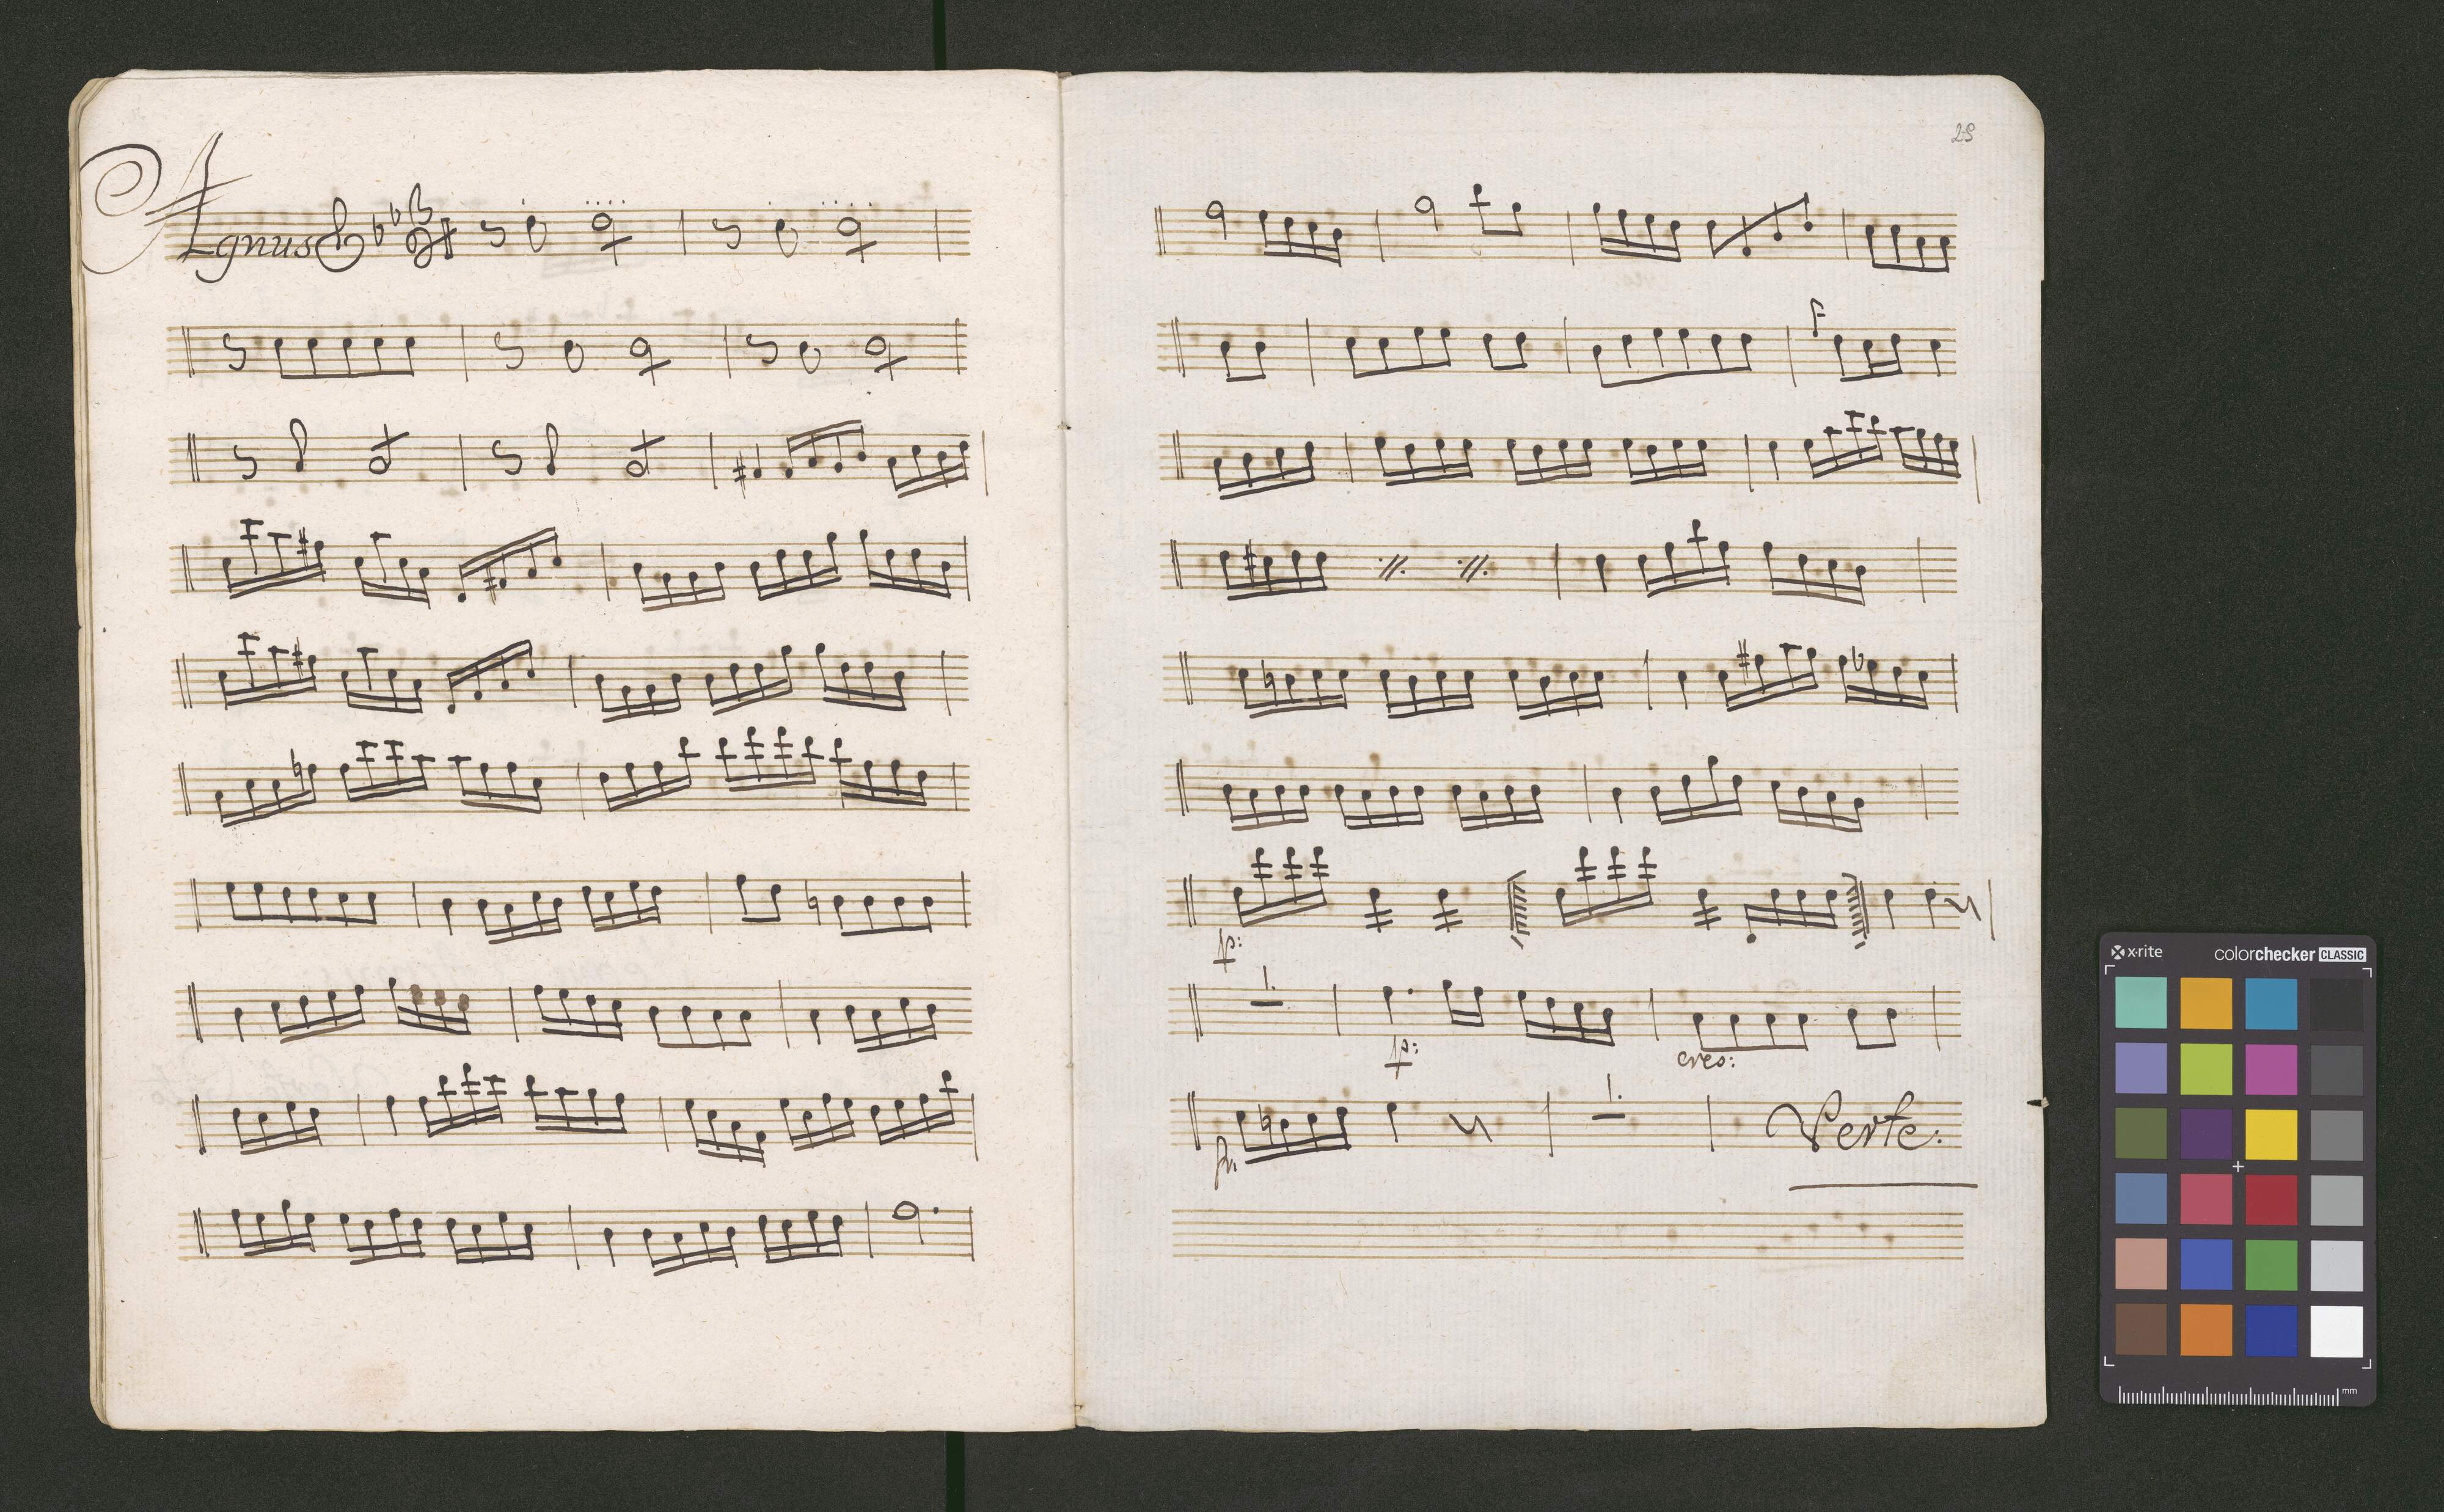 Agnus
25
F
p:
p:
cres:
fr.
Verte:
x-rite colorchecker CLASSIC
mm